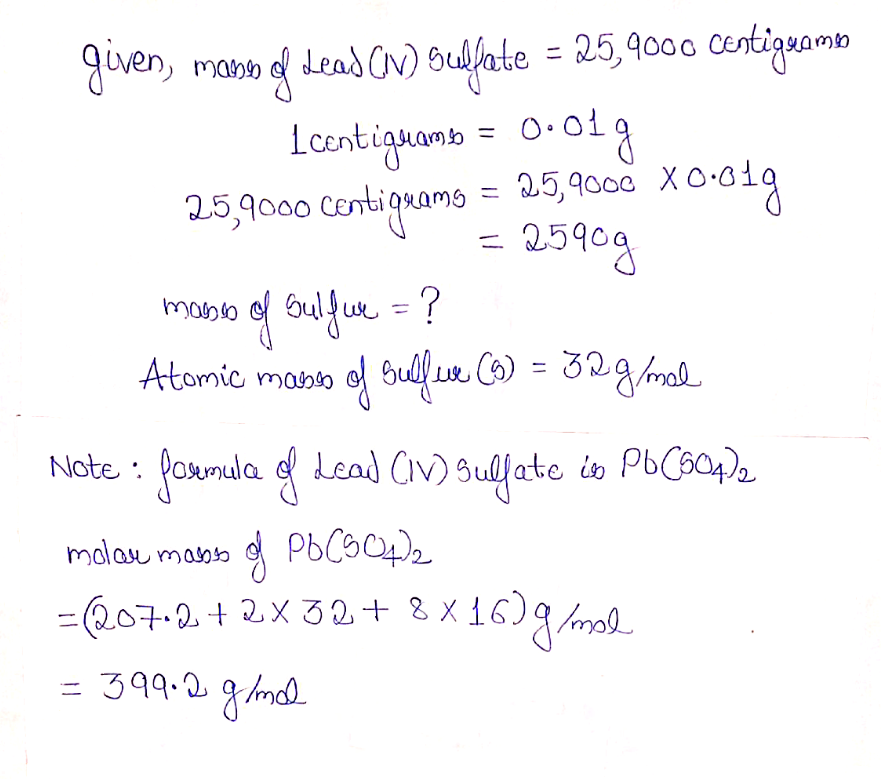 given, mass of Lead (IV) Sulfate = 25,9000 centigrams
1 centigrams = 0.01 g
25,9000 centigrams = 25,9000 X 0.01g
= 2590g
mass of Sulfur = ?
Atomic mass of Sulfur (S) = 32 g/mol
Note : formula of Lead (IV) Sulfate is Pb(SO4)2
molar mass of Pb(SO4)2
= (207.2 + 2 X 32 + 8 X 16) g/mol
= 399.2 g/mol